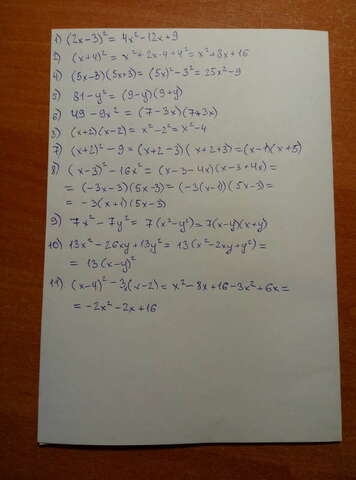 1) (2x-3)² = 4x²-12x+9
2) (x+4)² = x²+2x·4+4² = x²+8x+16
4) (5x-3)(5x+3) = (5x)²-3² = 25x²-9
5) 81-y² = (9-y)(9+y)
6) 49-9x² = (7-3x)(7+3x)
3) (x+2)(x-2) = x²-2² = x²-4
7) (x+2)²-9 = (x+2-3)(x+2+3) = (x-1)(x+5)
8) (x-3)²-16x² = (x-3-4x)(x-3+4x) =
= (-3x-3)(5x-3) = (-3(x+1)(5x-3) =
= -3(x+1)(5x-3)
9) 7x²-7y² = 7(x²-y²) = 7(x-y)(x+y)
10) 13x²-26xy+13y² = 13(x²-2xy+y²) =
= 13(x-y)²
11) (x-4)²-3x(x-2) = x²-8x+16-3x²+6x =
= -2x²-2x+16